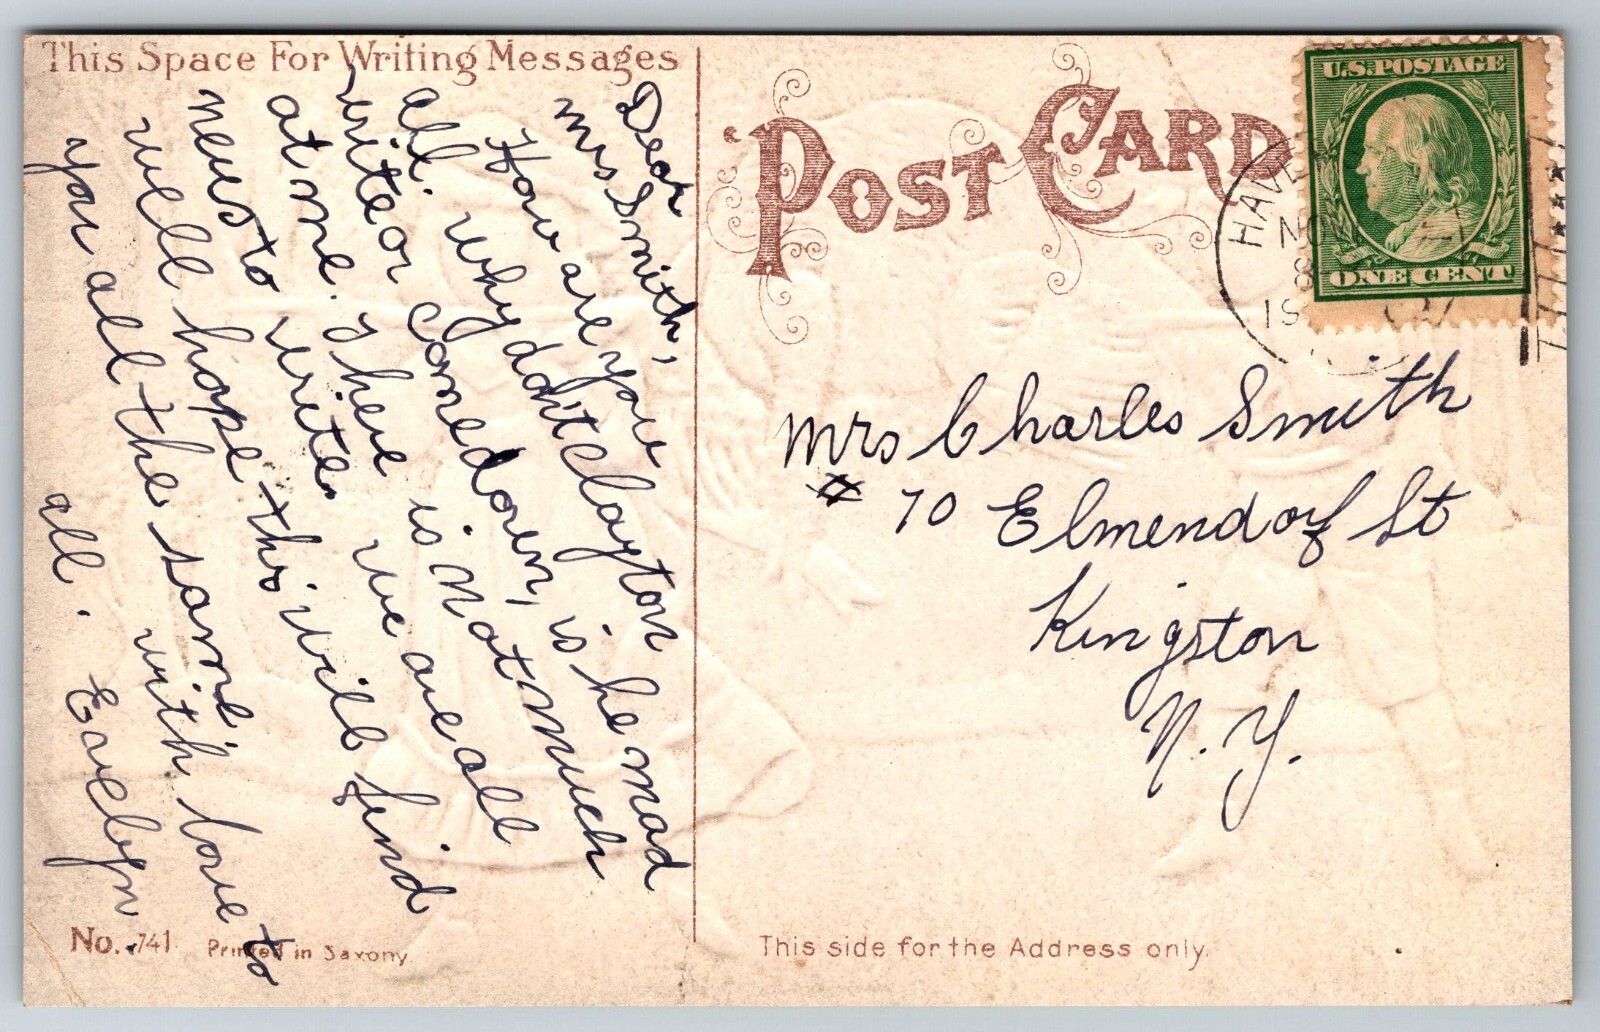 This Space For Writing Messages
Dear
Mrs Smith,
How are you
all. Why don't Clayton
write or come down, is he mad
at me. There is not much
news to write. we are all
well hope this will find
you all the same. with love to
all. Eavelyn
No. 741 Printed in Saxony
POST CARD
U.S. POSTAGE
ONE CENT
HAVE
NOV
8
19
Mrs Charles Smith
# 70 Elmendorf St
Kingston
N. Y.
This side for the Address only.